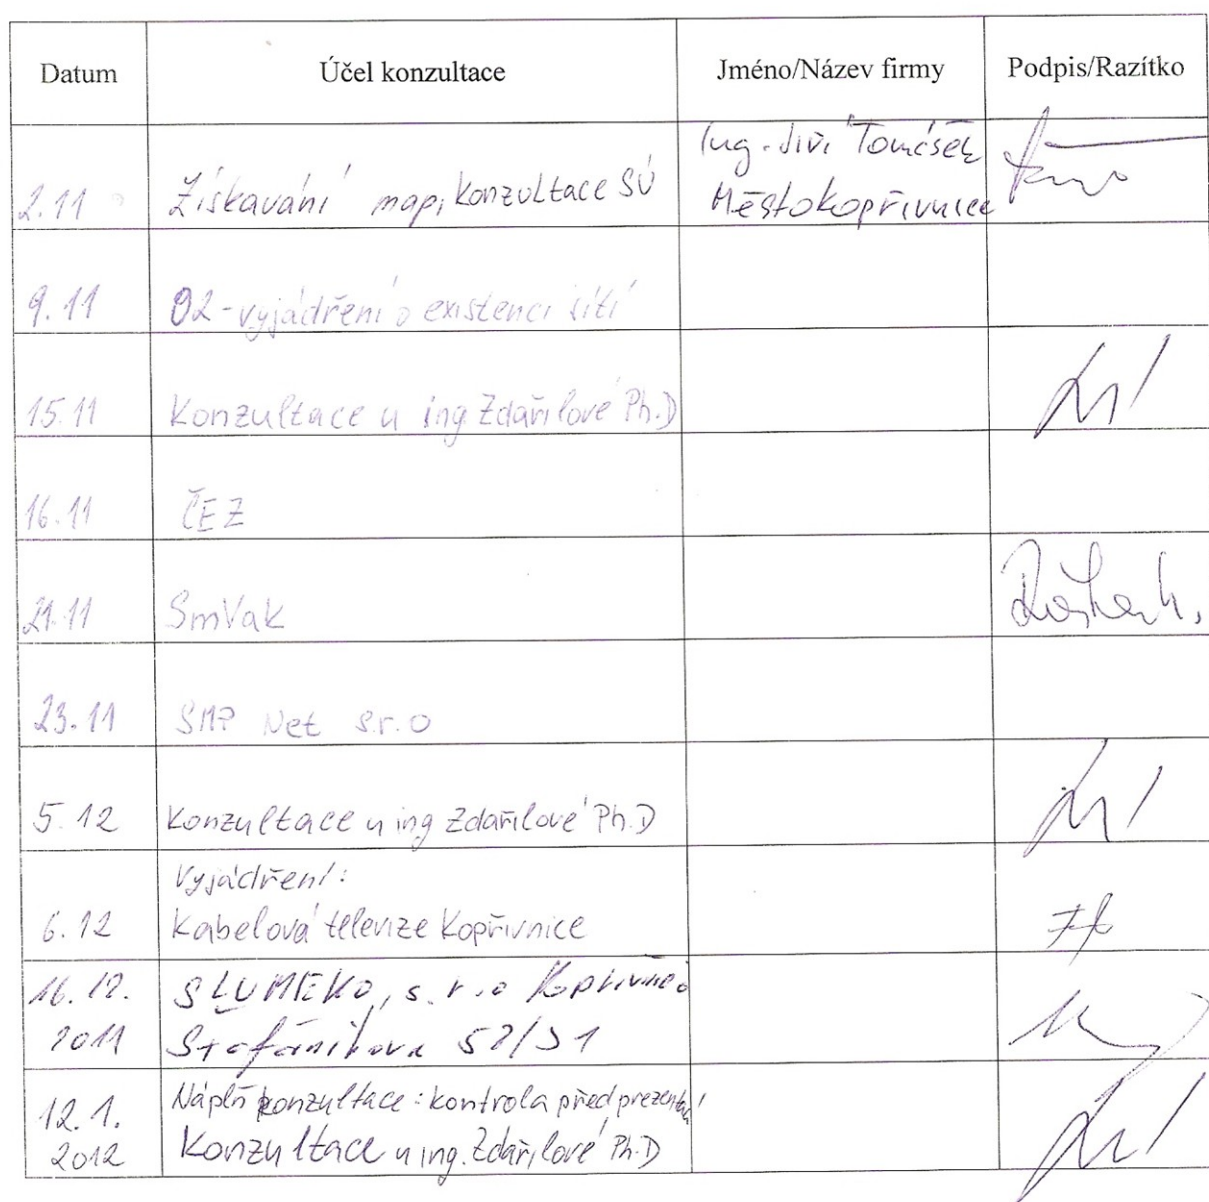 Datum Účel konzultace Jméno/Název firmy Podpis/Razítko
Ing. Jiří Tomášek
2.11 Získavání map, konzultace SÚ Město Kopřivnice
9.11 O2 - vyjádření o existenci sítí
15.11 Konzultace u ing Zdařilové Ph.D
16.11 ČEZ
21.11 SmVak
23.11 SMP Net s.r.o
5.12 Konzultace u ing Zdařilové Ph.D
Vyjádření:
6.12 Kabelová televize Kopřivnice
16.12. SLUMEKO, s.r.o Kopřivnice
2011 Štefánikova 58/31
12.1. Náplň konzultace: kontrola před prezentací
2012 Konzultace u ing. Zdařilové Ph.D